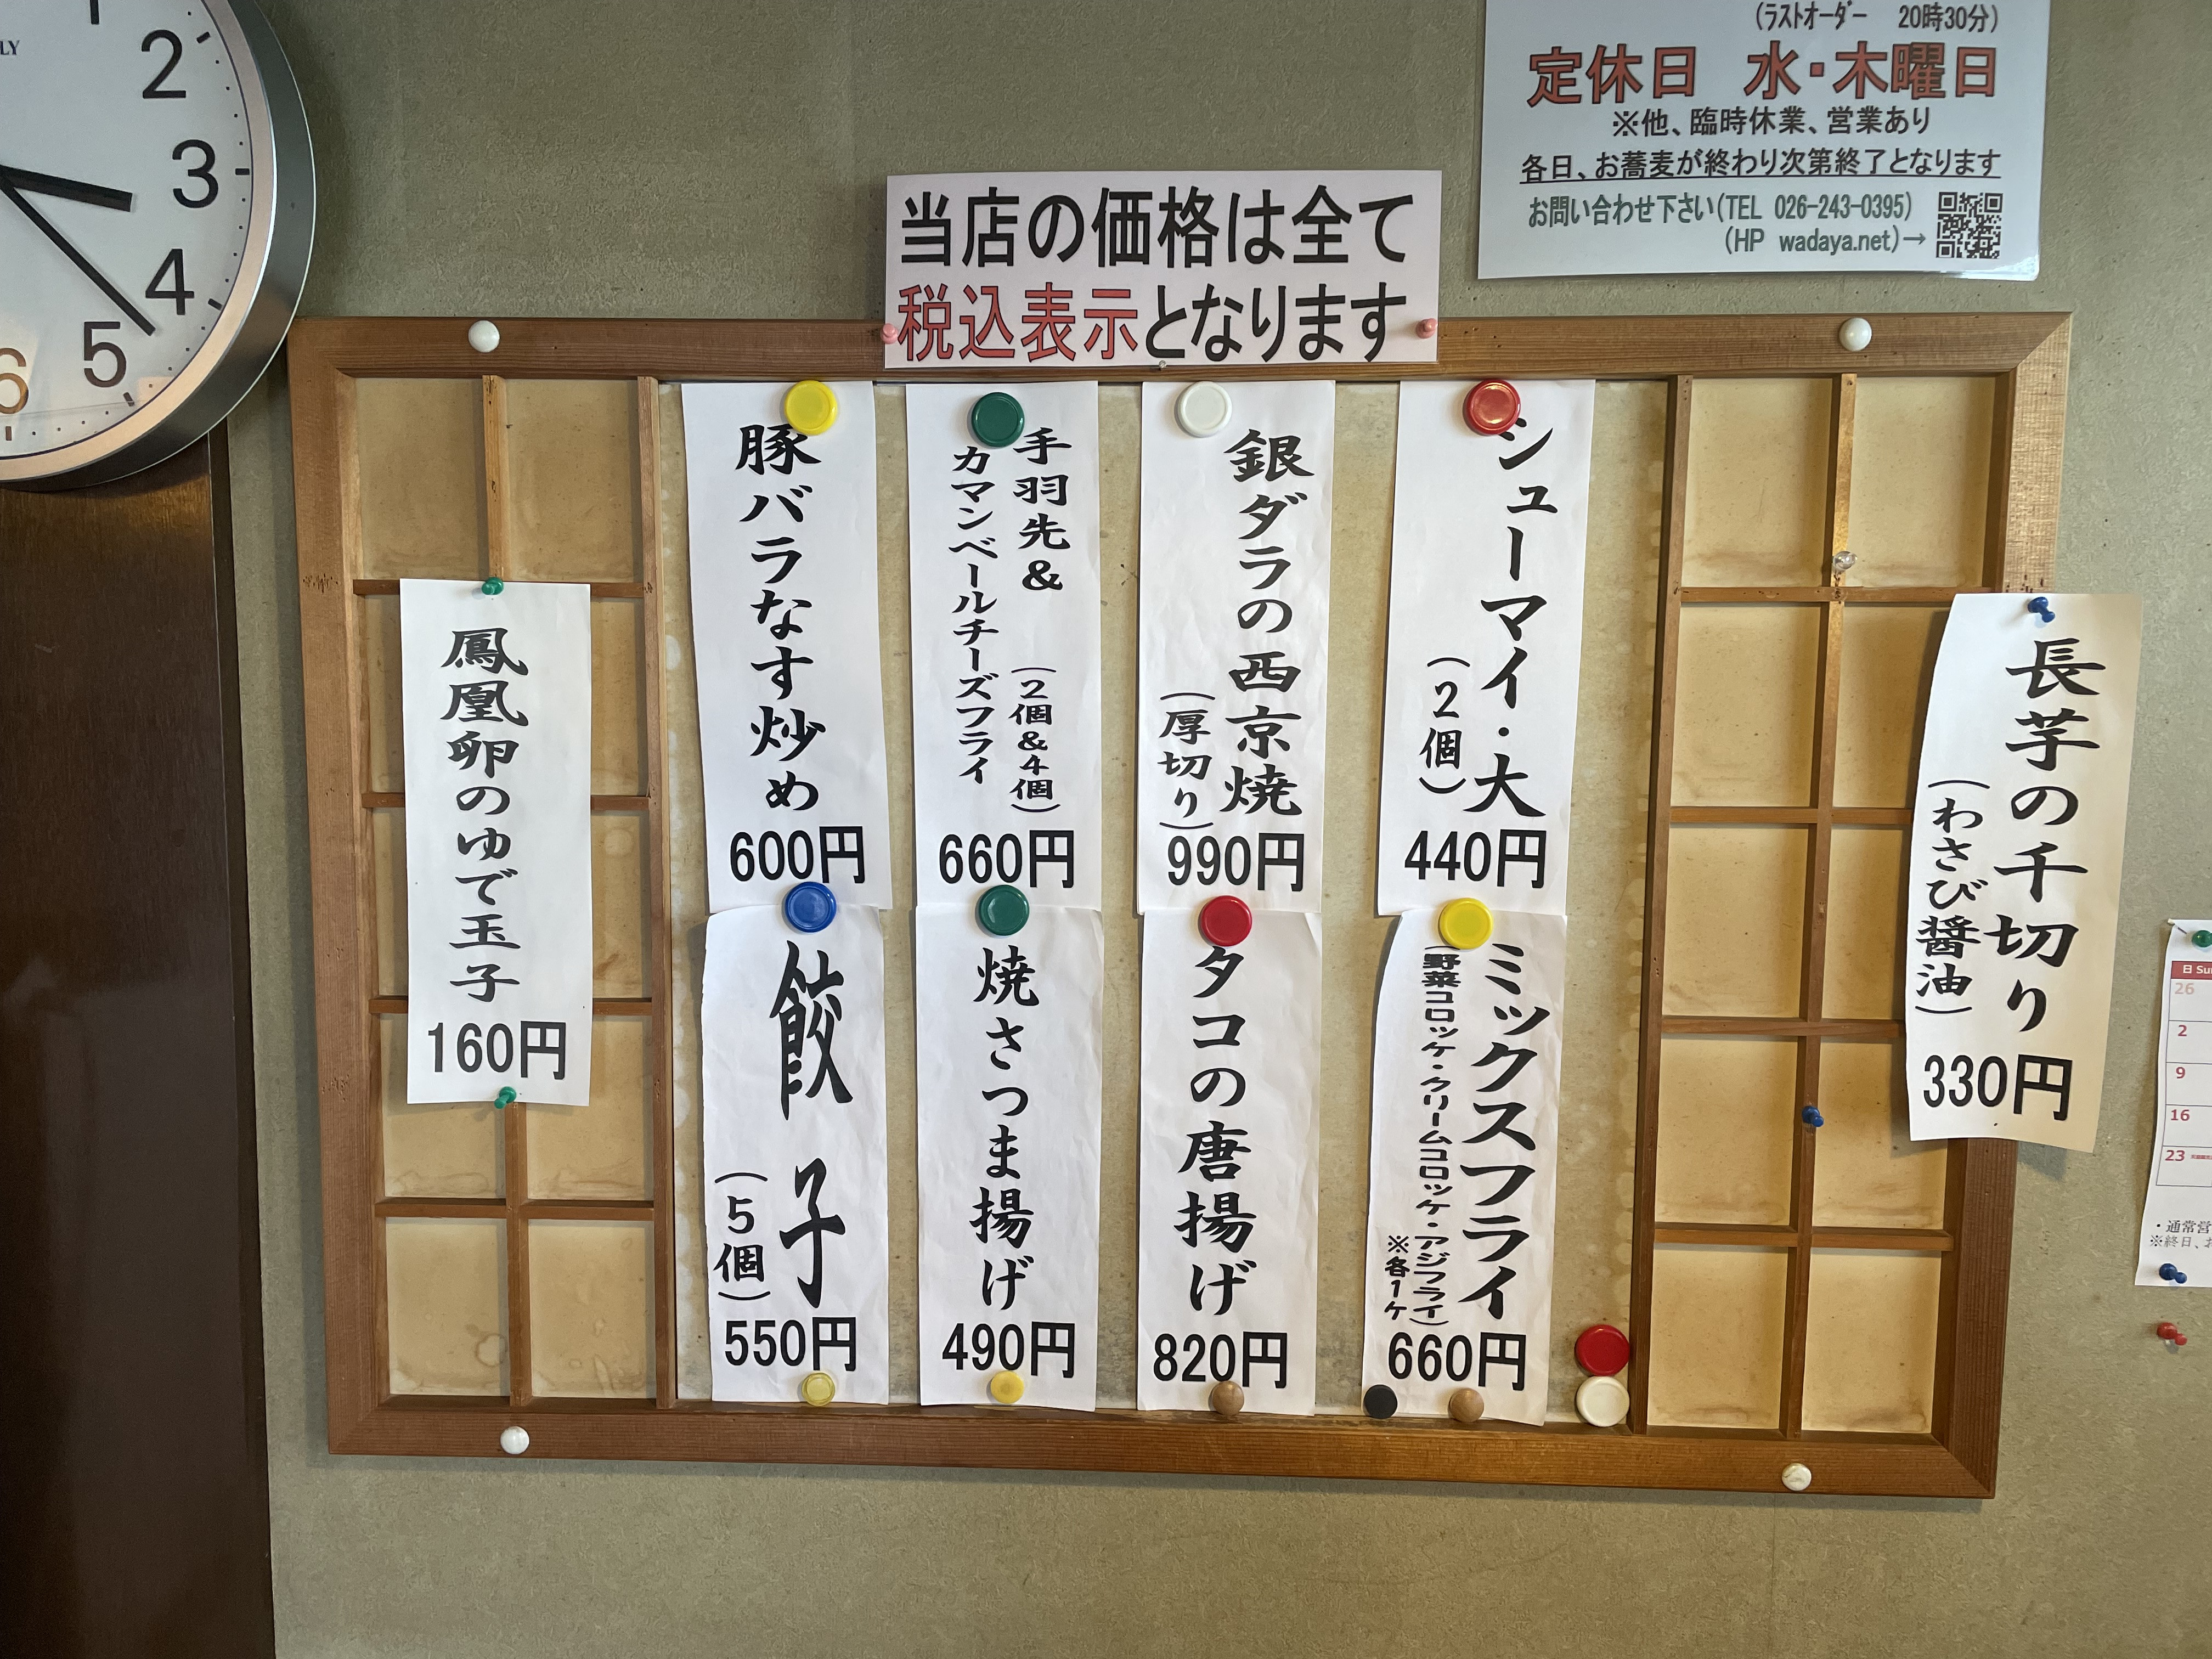 LY
1
2
3
4
5
6
(ラストオーダー 20時30分)
定休日 水・木曜日
※他、臨時休業、営業あり
各日、お蕎麦が終わり次第終了となります
お問い合わせ下さい(TEL 026-243-0395)
(HP wadaya.net)→
当店の価格は全て
税込表示となります
長芋の千切り
(わさび醤油)
330円
シューマイ・大
(2個)
440円
銀ダラの西京焼
(厚切り)
990円
手羽先&
(2個&4個)
カマンベールチーズフライ
660円
豚バラなす炒め
600円
ミックスフライ
(野菜コロッケ・クリームコロッケ・アジフライ)
※各1ケ
660円
タコの唐揚げ
820円
焼さつま揚げ
490円
餃子
(5個)
550円
鳳凰卵のゆで玉子
160円
日 Su
26
2
9
16
23
・通常営
※終日、お